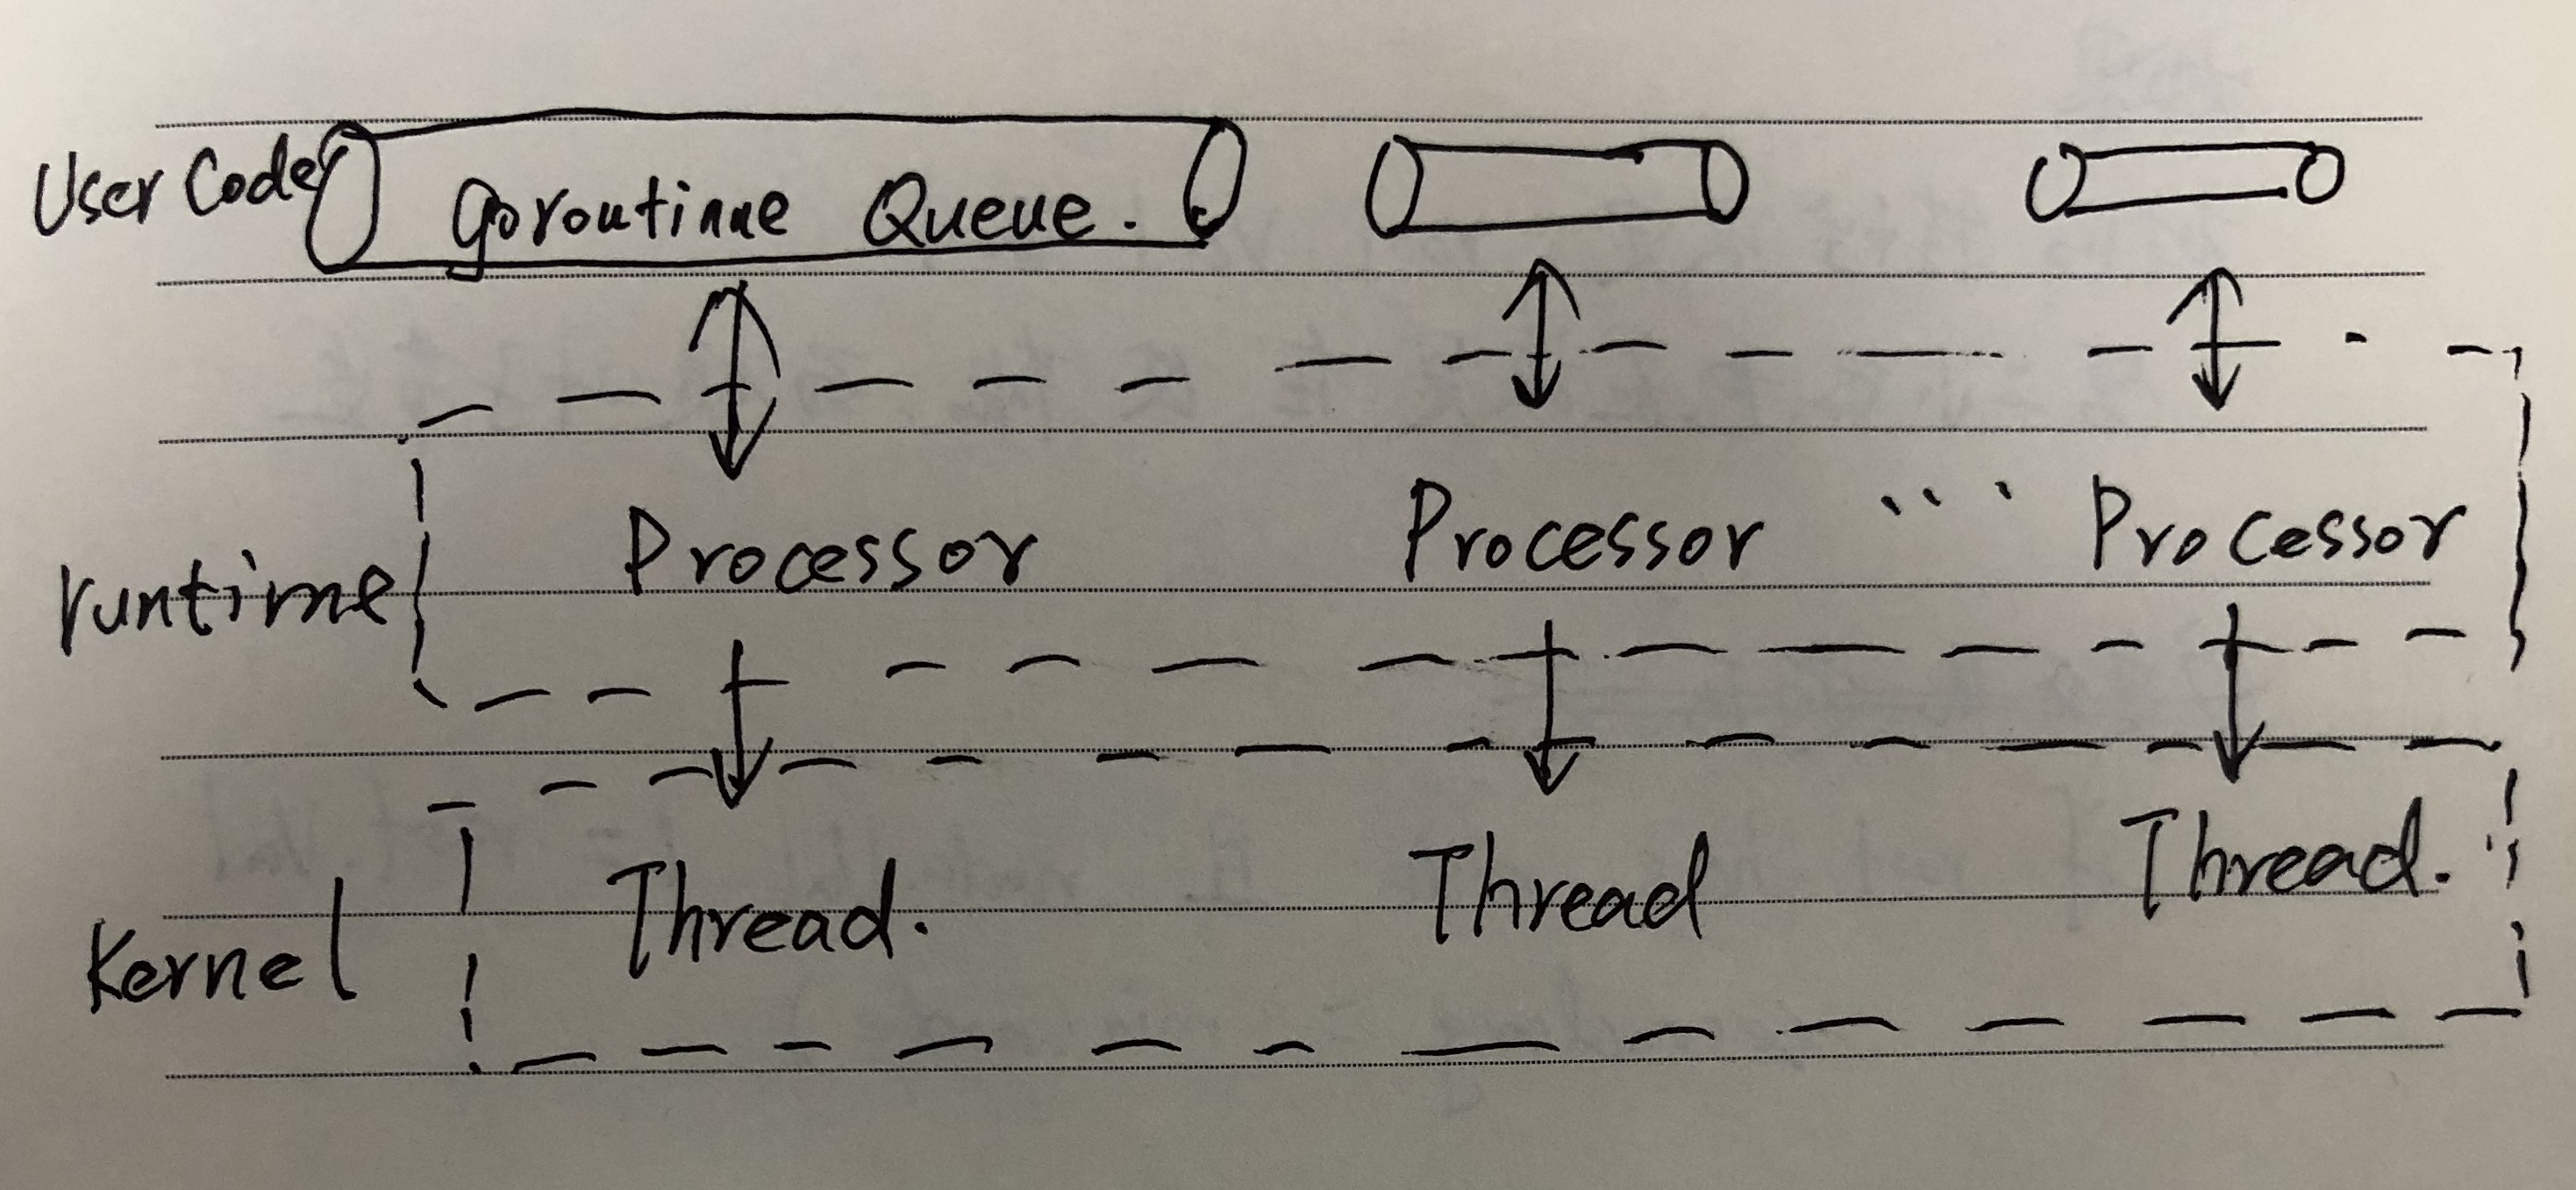 User Code goroutinne Queue.
runtime Processor Processor ... Processor
Kernel Thread. Thread Thread.